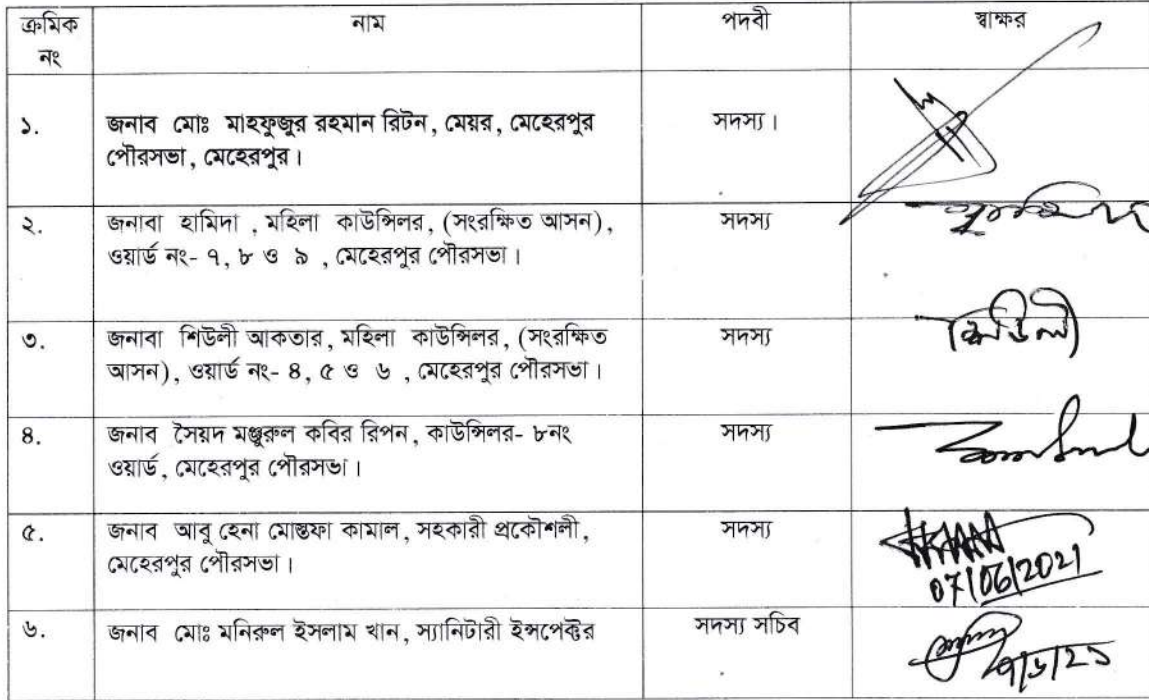 ক্রমিক নং
নাম
পদবী
স্বাক্ষর
১.
জনাব মোঃ মাহফুজুর রহমান রিটন, মেয়র, মেহেরপুর
পৌরসভা, মেহেরপুর।
সদস্য।
২.
জনাবা হামিদা , মহিলা কাউন্সিলর, (সংরক্ষিত আসন),
ওয়ার্ড নং- ৭, ৮ ও ৯ , মেহেরপুর পৌরসভা।
সদস্য
৩.
জনাবা শিউলী আকতার, মহিলা কাউন্সিলর, (সংরক্ষিত
আসন), ওয়ার্ড নং- ৪, ৫ ও ৬ , মেহেরপুর পৌরসভা।
সদস্য
শিউলী
৪.
জনাব সৈয়দ মঞ্জুরুল কবির রিপন, কাউন্সিলর- ৮নং
ওয়ার্ড, মেহেরপুর পৌরসভা।
সদস্য
৫.
জনাব আবু হেনা মোস্তফা কামাল, সহকারী প্রকৌশলী,
মেহেরপুর পৌরসভা।
সদস্য
07/06/2021
৬.
জনাব মোঃ মনিরুল ইসলাম খান, স্যানিটারী ইন্সপেক্টর
সদস্য সচিব